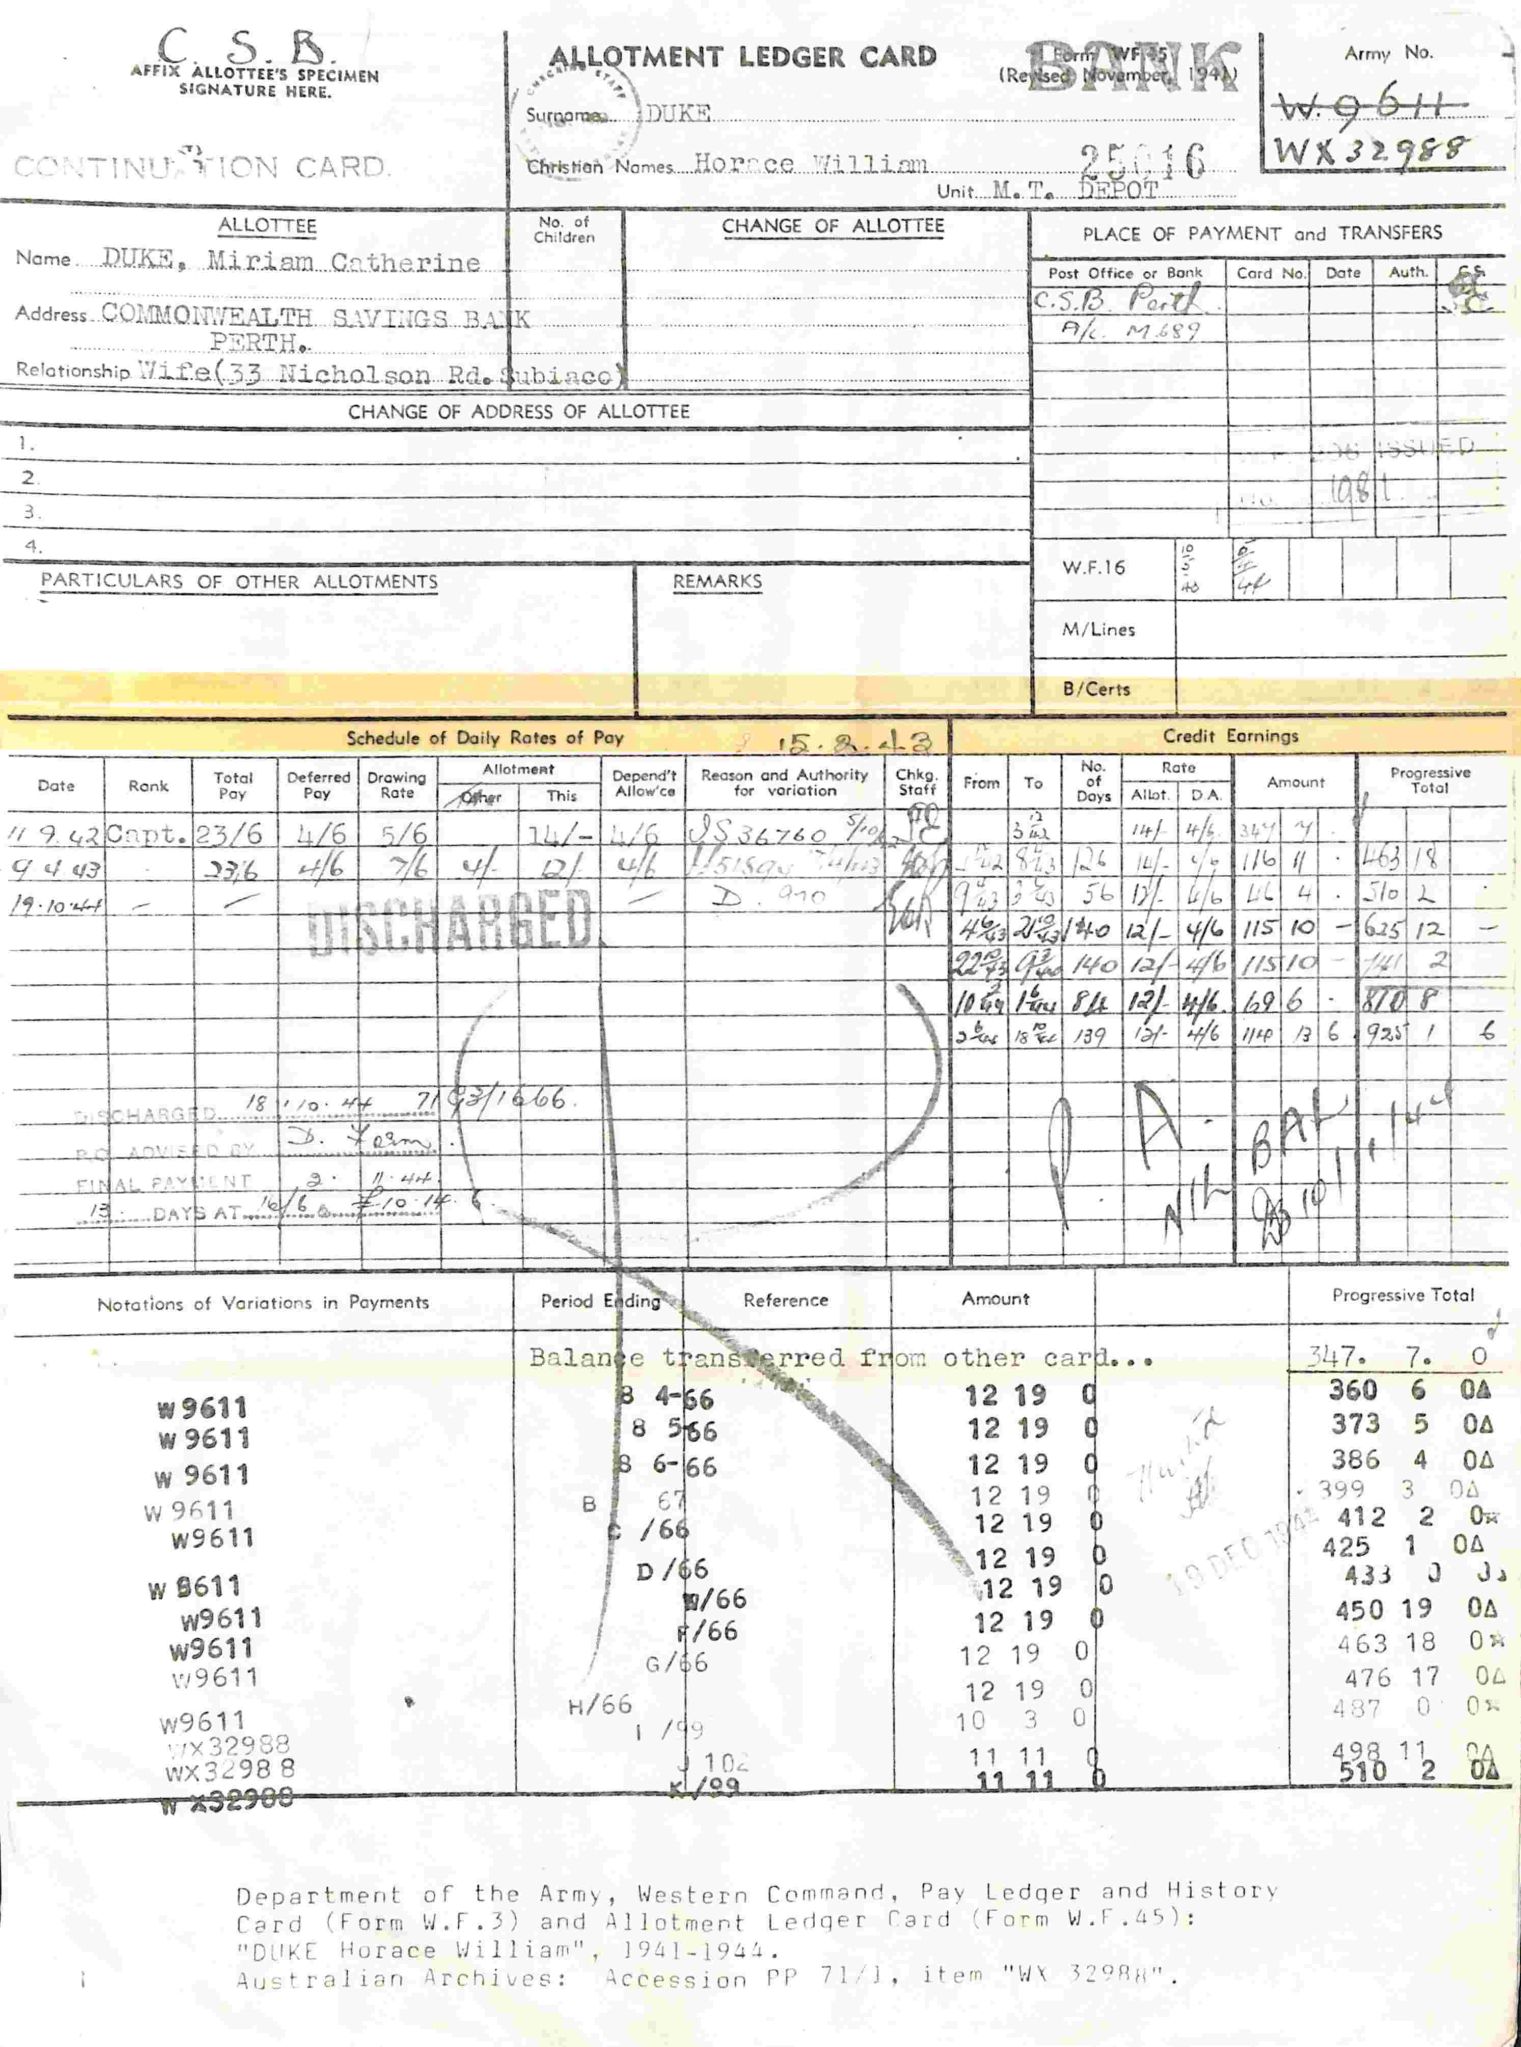 C. S. B.
AFFIX ALLOTTEE'S SPECIMEN
SIGNATURE HERE.
CONTINUATION CARD.
ALLOTMENT LEDGER CARD
Form WF 45
(Revised November, 1941)
BANK
Surname DUKE
Christian Names Horace William
25016
Unit M.T. DEPOT
Army No.
W.9611
WX32988
ALLOTTEE
Name DUKE, Miriam Catherine
Address COMMONWEALTH SAVINGS BANK
PERTH.
Relationship Wife(33 Nicholson Rd.Subiaco)
No. of
Children
CHANGE OF ALLOTTEE
PLACE OF PAYMENT and TRANSFERS
Post Office or Bank Card No. Date Auth.
C.S.B. Perth
A/c. M689
ISSUED
No. 1981
CHANGE OF ADDRESS OF ALLOTTEE
1.
2.
3.
4.
PARTICULARS OF OTHER ALLOTMENTS
REMARKS
W.F.16
M/Lines
B/Certs
Schedule of Daily Rates of Pay 15.2.43
Credit Earnings
Date Rank Total Pay Deferred Pay Drawing Rate Allotment Other This Depend't Allow'ce Reason and Authority for variation Chkg. Staff
From To No. of Days Rate Allot. D.A. Amount Progressive Total
11 9.42 Capt. 23/6 4/6 5/6 14/- 4/6 JS36760 5/10
3 12/42 14/- 4/6 347 7 .
9 4 43 23/6 4/6 7/6 4/- 12/- 4/6
8 4/43 126 14/- 4/6 116 11 . 463 18
19.10.44 — — — D. 910
9 4/43 3 6/43 56 12/- 4/6 46 4 . 510 2 .
DISCHARGED
4 6/43 21 10/43 140 12/- 4/6 115 10 — 625 12 —
22 10/43 9 3/44 140 12/- 4/6 115 10 — 741 2
10 3/44 1 6/44 84 12/- 4/6. 69 6 . 810 8
2 6/44 18 10/44 139 12/- 4/6 114 13 6 925 1 6
DISCHARGED 18.10.44 7193/1666.
P.O. ADVISED BY D. Form.
FINAL PAYMENT 2. 11.44.
13 DAYS AT 16/6 £10.14.6
P. A.
NIL BAL
10/11/44
Notations of Variations in Payments Period Ending Reference Amount Progressive Total
Balance transferred from other card... 347. 7. 0
W 9611 8 4-66 12 19 0 360 6 0Δ
W 9611 8 5-66 12 19 0 373 5 0Δ
W 9611 8 6-66 12 19 0 386 4 0Δ
W 9611 B 67 12 19 0 399 3 0Δ
W9611 C /66 12 19 0 412 2 0☆
D/66 12 19 0 425 1 0Δ
W 9611 /66 12 19 0 433 0
W9611 F/66 12 19 0 450 19 0Δ
W9611 G/66 12 19 0 463 18 0☆
W9611 H/66 12 19 0 476 17 0Δ
W9611 I /99 10 3 0 487 0 0☆
WX32988
WX32988 J 102 11 11 0 498 11 0Δ
WX32988 K/99 11 11 0 510 2 0Δ
Department of the Army, Western Command, Pay Ledger and History
Card (Form W.F.3) and Allotment Ledger Card (Form W.F.45):
"DUKE Horace William", 1941-1944.
Australian Archives: Accession PP 71/1, item "WX 32988".